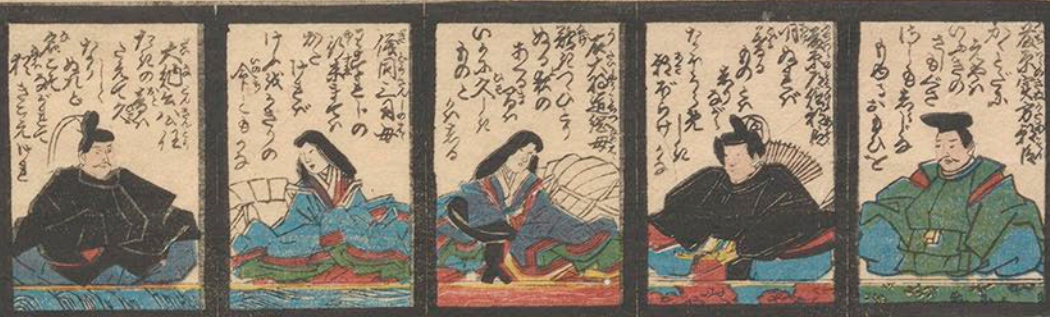 藤原実方朝臣
かくとだに
えやはい
ふきの
さしもぐさ
さしもしらじな
もゆるおもひを
藤原道信朝臣
明ぬれば
くるる
ものとは
しりながら
なをうらめしき
朝ぼらけかな
右大将道綱母
歎きつつひとり
ぬる夜の
あくるまは
いかに久しき
ものと
かはしる
儀同三司母
わすれじの
行末までは
かた
ければ
けふをかぎりの
命ともがな
大納言公任
たきの音は
たえて久
しく
なり
ぬれど
名こそながれて
猶きこえけれ